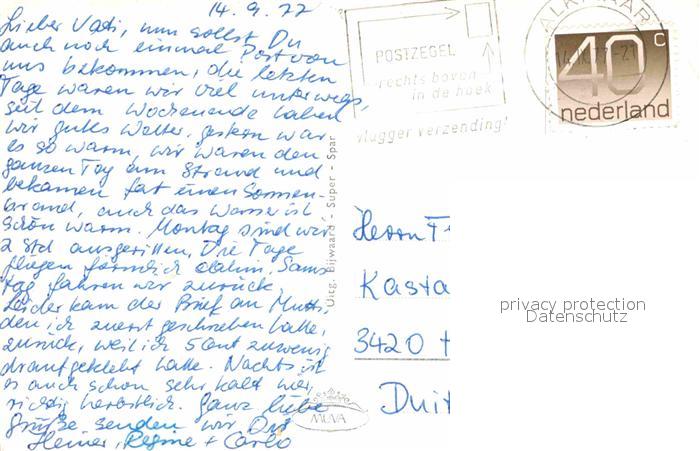 14.9.77
Lieber Vati, nun sollst Du
auch noch einmal Post von
uns bekommen, die letzten
Tage waren wir viel unterwegs,
seit dem Wochenende haben
wir gutes Wetter, gestern war
es so warm, wir waren den
ganzen Tag am Strand und
bekamen fast einen Sonnen-
brand, auch das Wasser ist
schön warm. Montag sind wir
2 Std ausgeritten. Die Tage
fliegen förmlich dahin, Sams-
tag fahren wir zurück.
Leider kam der Brief an Mutti,
den ich zuerst geschrieben hatte,
zurück, weil ich 5 Cent zuwenig
draufgeklebt hatte. Nachts ist
es auch schon sehr kalt
richtig herbstlich. Ganz liebe
Grüße senden wir Dir
Heiner, Regine + Carlo
Uitg. Bijwaard - Super - Spar
MUVA
POSTZEGEL
rechts boven
in de hoek
vlugger verzending!
ALKMAAR
40 c
nederland
Herrn
Kasta
3420
Duit
privacy protection
Datenschutz